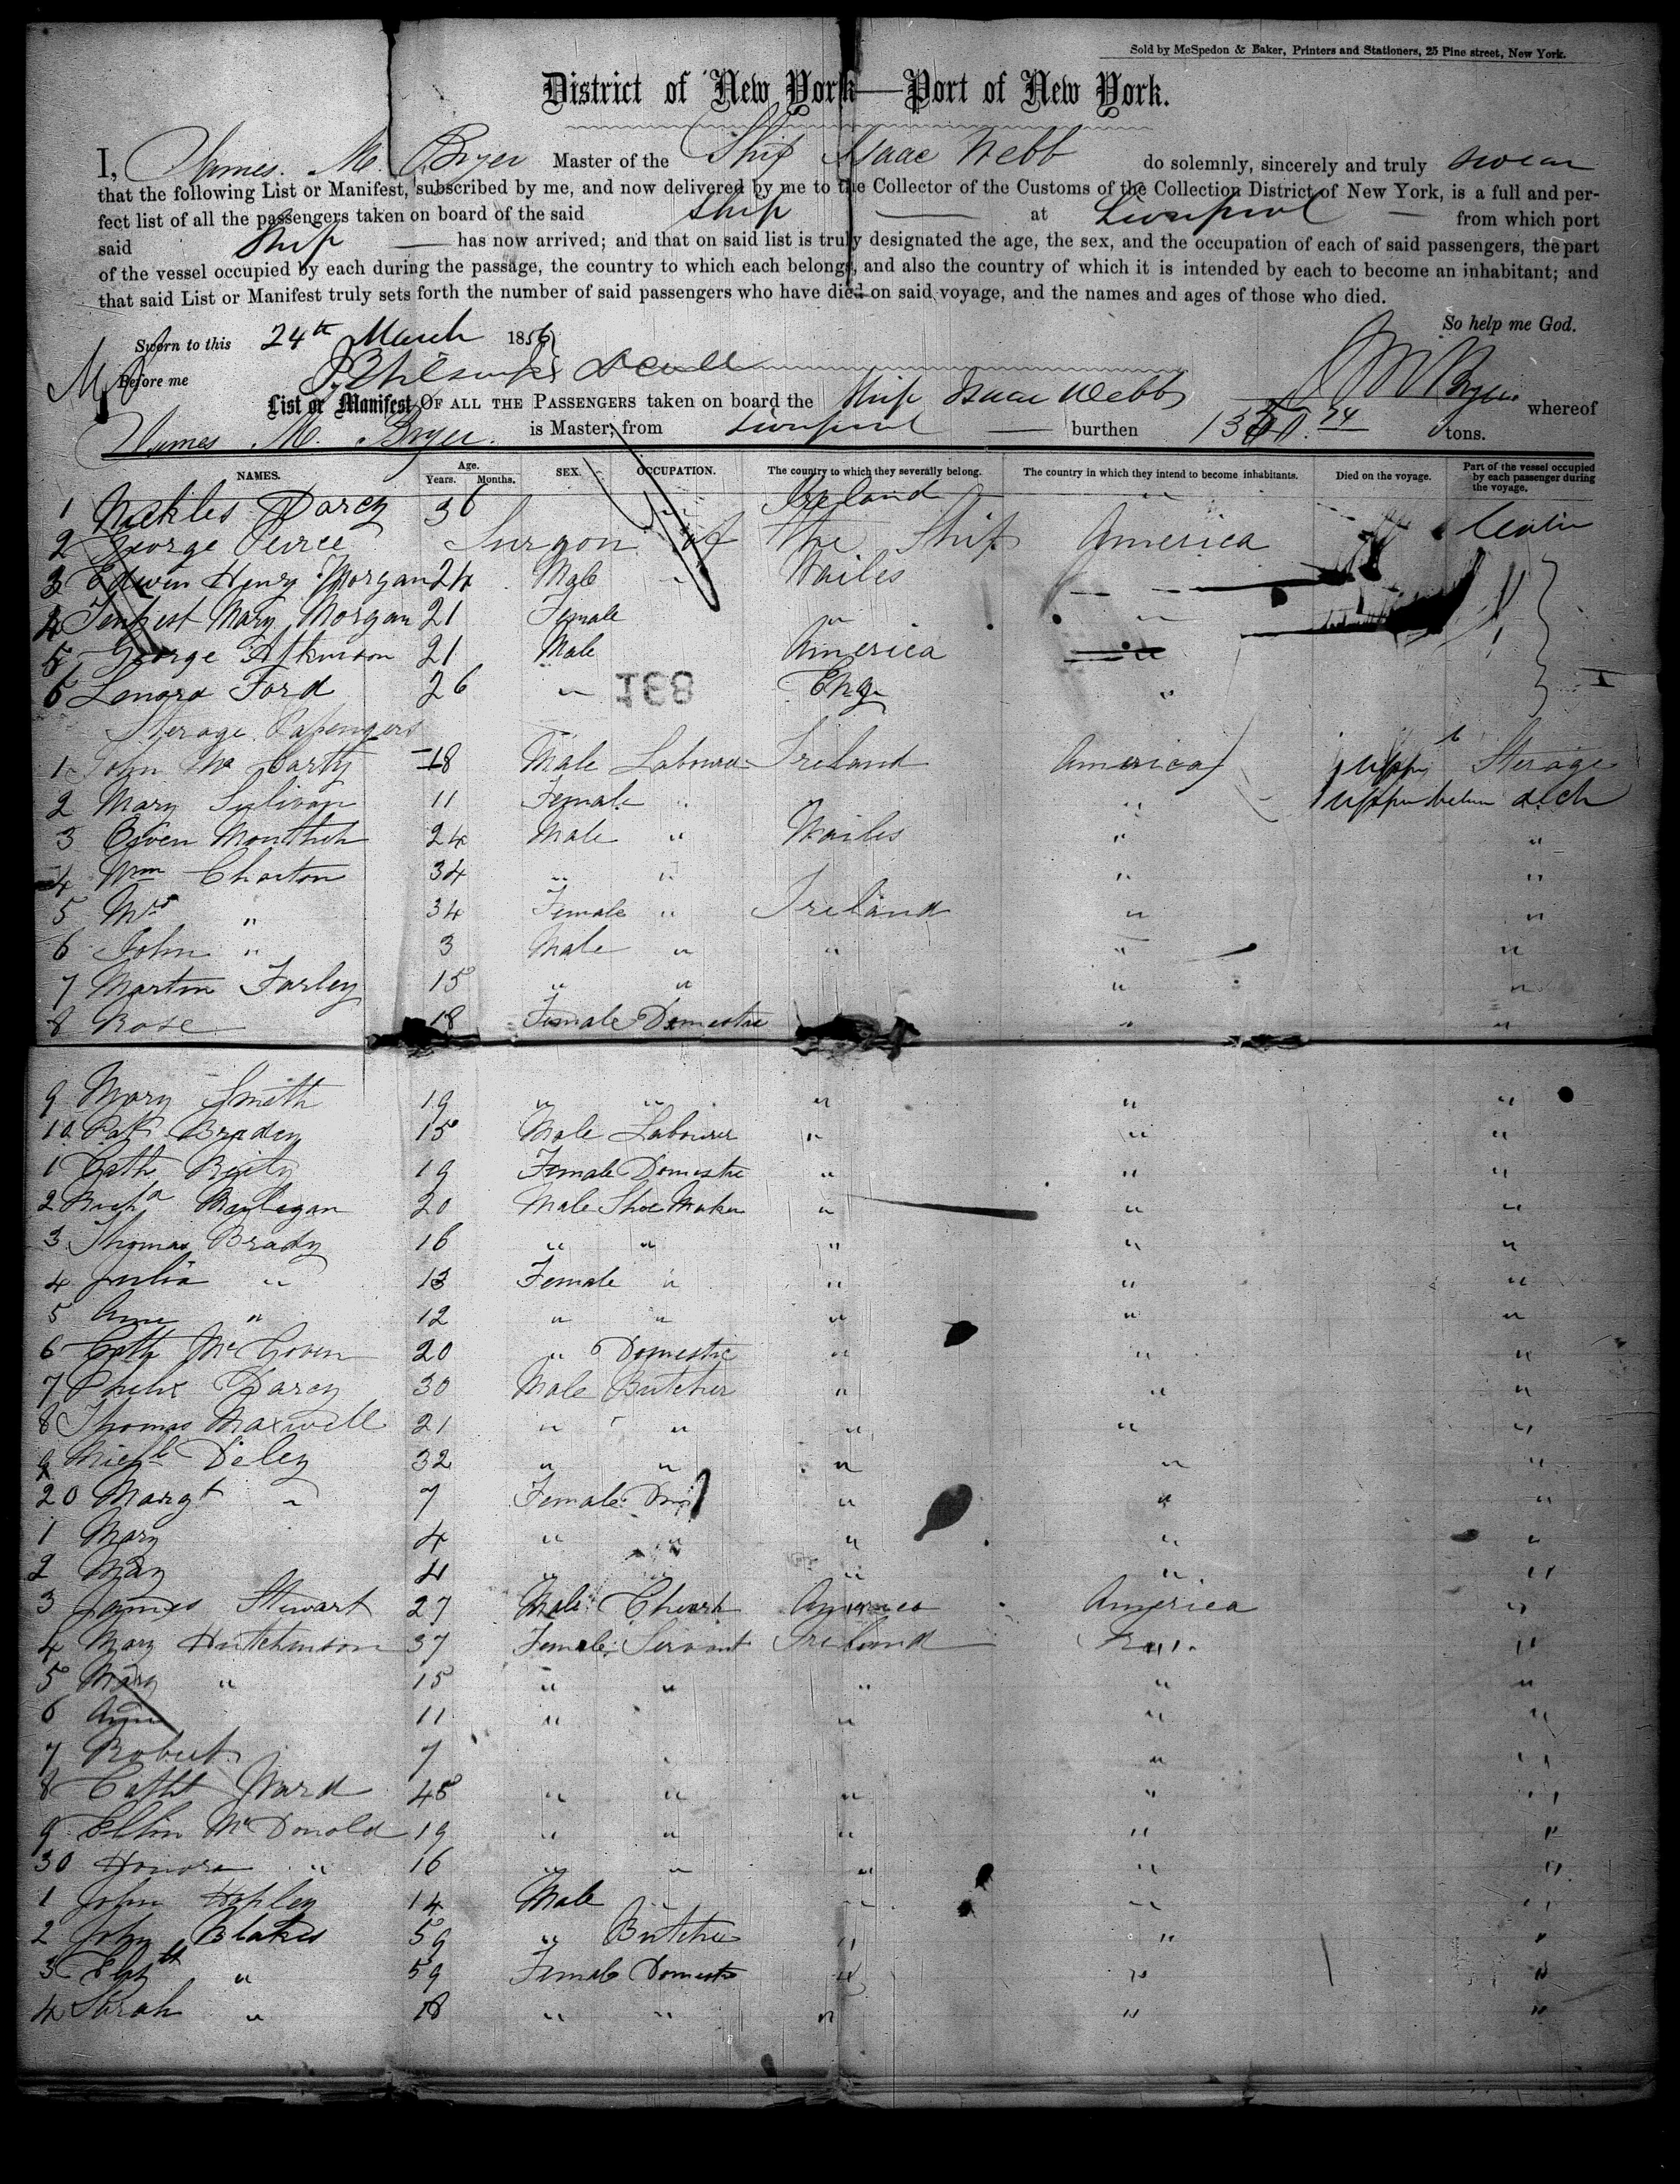 Sold by McSpedon & Baker, Printers and Stationers, 25 Pine street, New York.
District of New York—Port of New York.
I, James. M. Bryer Master of the Ship Isaac Webb do solemnly, sincerely and truly swear
that the following List or Manifest, subscribed by me, and now delivered by me to the Collector of the Customs of the Collection District of New York, is a full and per-
fect list of all the passengers taken on board of the said Ship at Liverpool from which port
said Ship has now arrived; and that on said list is truly designated the age, the sex, and the occupation of each of said passengers, the part
of the vessel occupied by each during the passage, the country to which each belongs, and also the country of which it is intended by each to become an inhabitant; and
that said List or Manifest truly sets forth the number of said passengers who have died on said voyage, and the names and ages of those who died.
So help me God.
Sworn to this 24th March 1856
Before me
List or Manifest OF ALL THE PASSENGERS taken on board the Ship Isaac Webb whereof
James M. Bryer. is Master, from Liverpool burthen tons.
NAMES. Age. Years. Months. SEX. OCCUPATION. The country to which they severally belong. The country in which they intend to become inhabitants. Died on the voyage. Part of the vessel occupied by each passenger during the voyage.
1 Nickles Darcy 36 Ireland "
2 George Peirce Surgon of the Ship America
3 Edwin Henry Morgan 24 Male " Wailes "
4 Tempest Mary Morgan 21 Female " "
5 George Atkinson 21 Male America "
6 Lenora Ford 26 " Eng "
168
Sterage Pasengers
1 John Mc Carty 18 Male Labourer Ireland America upper Sterage
2 Mary Sulivan 11 Female " " upper between deck
3 Owen Monttich 24 Male " Wailes " "
4 Wm Charton 34 " " " "
5 Mrs " 34 Female " Ireland " "
6 John " 3 Male " " " "
7 Martin Farley 15 " " " "
8 Rose 18 Female Domestic " "
9 Mary Smith 19 " " " " "
10 Pat Braden 15 Male Labourer " " "
1 Cath Reily 19 Female Domestic " " "
2 Richd Mayligan 20 Male Shoe Maker " " "
3 Thomas Brady 16 " " " " "
4 Julia " 13 Female " " " "
5 Ann " 12 " " " " "
6 Cath McGovern 20 " Domestic " " "
7 Phelix Darcy 30 Male Butcher " " "
8 Thomas Maxwell 21 " " " " "
9 Michl Deley 32 " " " " "
20 Margt " 7 Female Dom " " "
1 Mary 4 " " " " "
2 May 4 " " " " "
3 James Stewart 27 Male America America "
4 Mary Hutchinson 37 Female Servant Ireland "
5 Mary " 15 " " " " "
6 Ann 11 " " " "
7 Robert 7 " "
8 Catht Ward 45 " " " " "
9 Ellin McDonold 19 " " " " "
30 Honora " 16 " " " " "
1 John Hopley 14 Male " " " "
2 John Blakes 59 " Butcher " " "
3 Elizth " 59 Female Domestic " " "
4 Sarah " 18 " " " " "